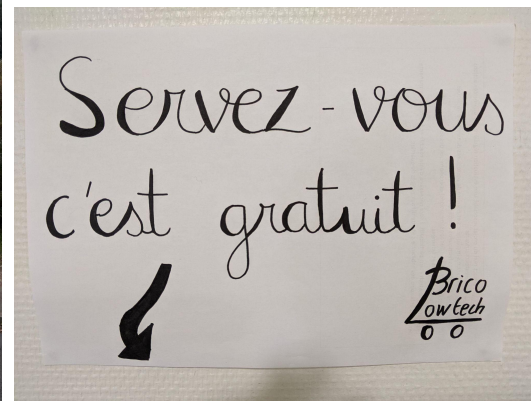 Servez-vous
c'est gratuit !
Brico
Lowtech